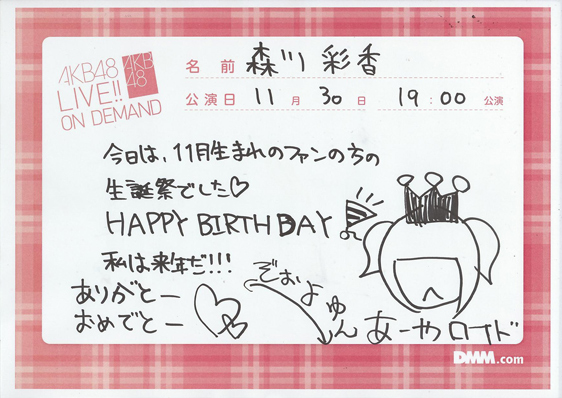 AKB48
LIVE!!
ON DEMAND
AKB
48
名前 森川 彩香
公演日 11月 30日 19:00 公演
今日は、11月生まれのファンの方の
生誕祭でした♡
HAPPY BIRTHDAY
私は来年だ!!!
ありがとー
おめでとー
ぞぉよゅん
あーやロイド
DMM.com